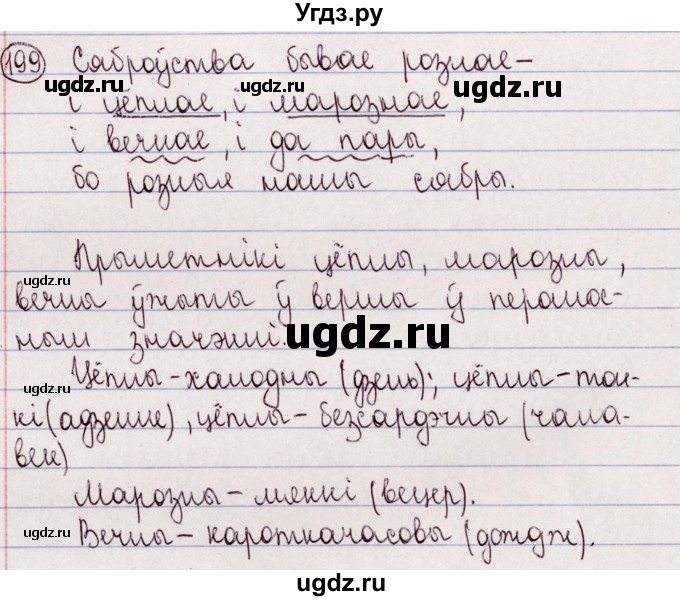 Угдз.ру
199 Саброўства бывае рознае-
і цёплае, і марознае,
і вечнае, і да пары,
бо розныя нашы сябры.
Прыметнікі цёплы, марозны,
вечны ўжыты ў вершы ў перанос-
ным значэнні.
Цёплы-халодны (дзень); цёплы-тон-
кі (адзенне), цёплы-безсардэчны (чала-
век)
Марозны-мяккі (вецер).
Вечны-кароткачасовы (дождж).
ugdz.ru
ugdz.ru
ugdz.ru
ugdz.ru
ugdz.ru
ugdz.ru
ugdz.ru
ugdz.ru
ugdz.ru
ugdz.ru
ugdz.ru